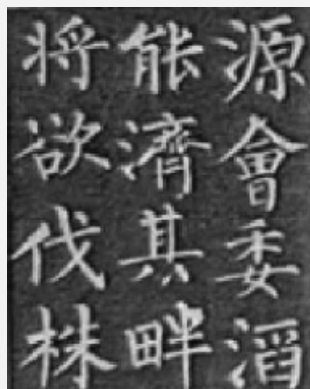 源會委滔
能濟其畔
將欲伐株